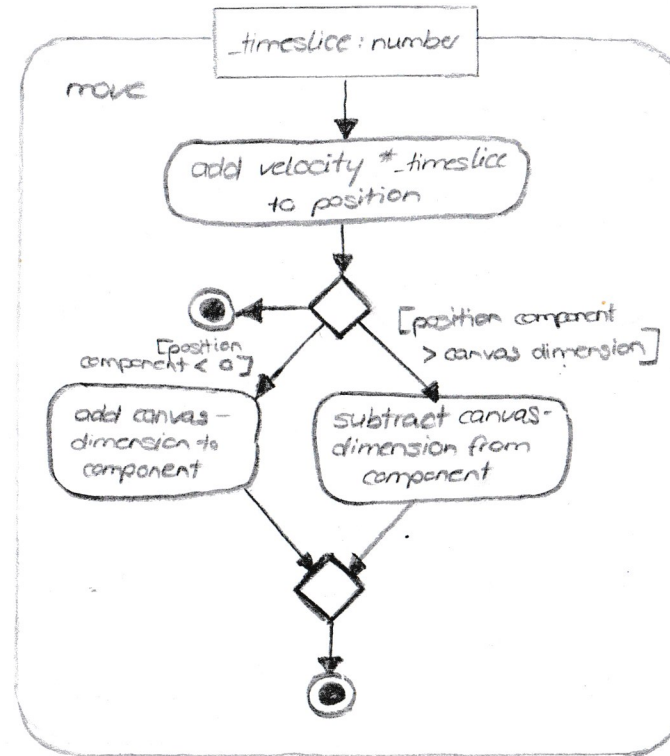 _timeslice: number
move
add velocity *_timeslice
to position
[position component
> canvas dimension]
[position
component < 0]
add canvas-
dimension to
component
subtract canvas-
dimension from
component